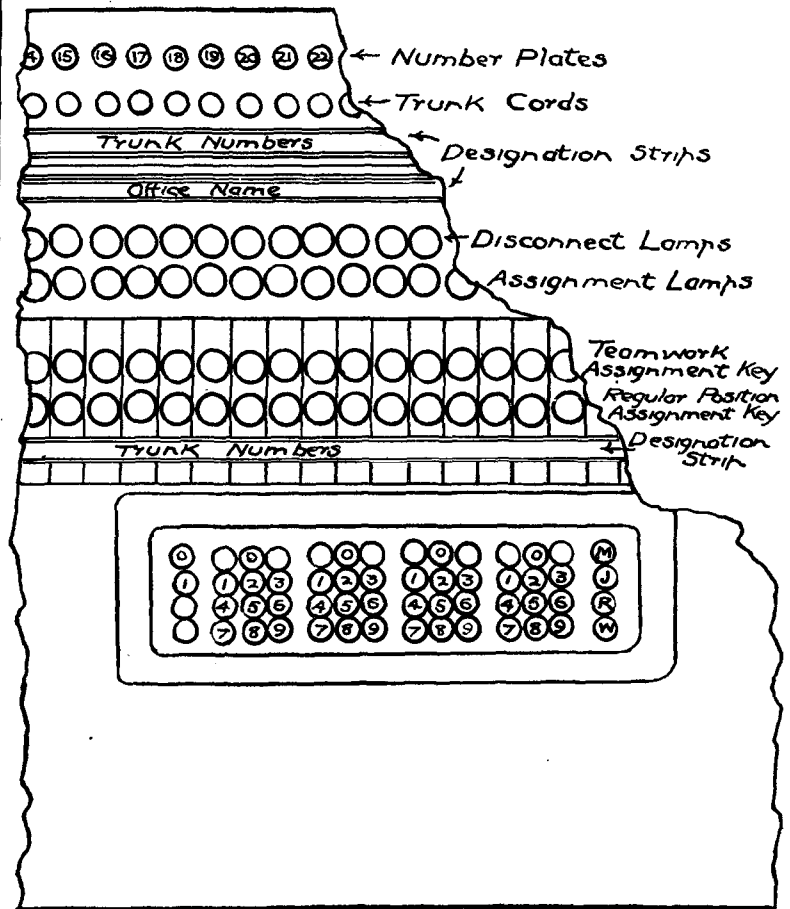 4 15 16 17 18 19 20 21 22 ← Number Plates
← Trunk Cords
Trunk Numbers
Designation Strips
Office Name
Disconnect Lamps
Assignment Lamps
Teamwork
Assignment Key
Regular Position
Assignment Key
Trunk Numbers
Designation
Strip
0 0 0 0 0 M
1 1 2 3 1 2 3 1 2 3 1 2 3 J
4 5 6 4 5 6 4 5 6 4 5 6 R
7 8 9 7 8 9 7 8 9 7 8 9 W